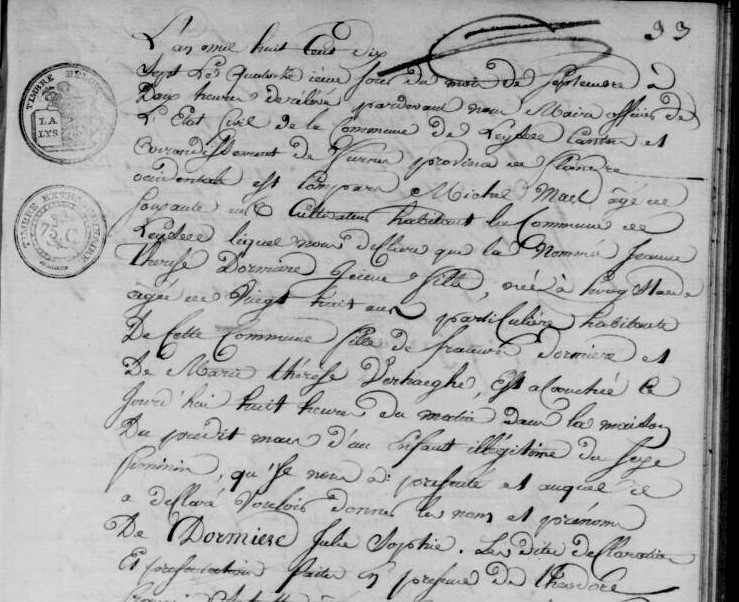 33
L'an mil huit Cent dix
Sept Le Quatorzième jour du mois de Septembre à
Deux heures de relevée pardevant nous Maire officier de
L'Etat Civil de la Commune de Leysele Canton et
arrondissement de Furnes province de flandre
occidentale est Comparu Michel Mael âgé de
soixante ans Cultivateur habitant la Commune de
Leysele lequel nous déclare que la nommé Jeanne
therese Dormiere Jeune fille, née à
âgée de Vingt huit ans particulière habitante
De Cette Commune fille de francois Dormiere et
De Marie thérèse Verhaeghe, Est accouchée ce
jourd'hui huit heures du matin dans la maison
Du prédit mael d'un Enfant illégitime du Sexe
feminin, qu'il nous a présenté et auquel il
a déclaré Vouloir donner les nom et prénoms
De Dormiere Julie Sophie. Les dite déclaration
Et présentation faites en présence de theodore
TIMBRE BELGE
LA
LYS
TIMBRE EXTRAORDINAIRE
75 C